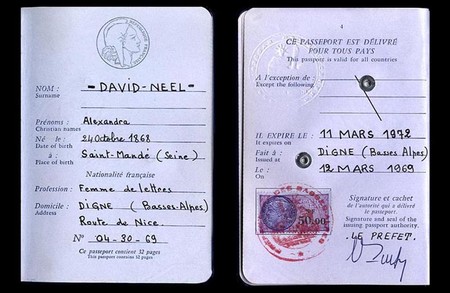 NOM : - DAVID-NEEL -
Surname
Prénoms : Alexandra
Christian names
Né le : 24 Octobre 1868
Date of birth
à Saint-Mandé (Seine)
Place of birth
Nationalité française
Profession : Femme de lettres
Domicile : DIGNE (Basses-Alpes)
Address
Route de Nice.
N° 04-30-69
Ce passeport contient 32 pages
This passport contains 32 pages
4
CE PASSEPORT EST DÉLIVRÉ
POUR TOUS PAYS
This passport is valid for all countries
A l'exception de :
Except the following
IL EXPIRE LE : 11 MARS 1972
It expires on
Fait à : DIGNE (Basses Alpes)
Issued at
Le : 12 MARS 1969
On
50,00
Signature et cachet
de l'autorité qui a délivré
le passeport.
Signature and seal of the
issuing passport authority.
LE PREFET.